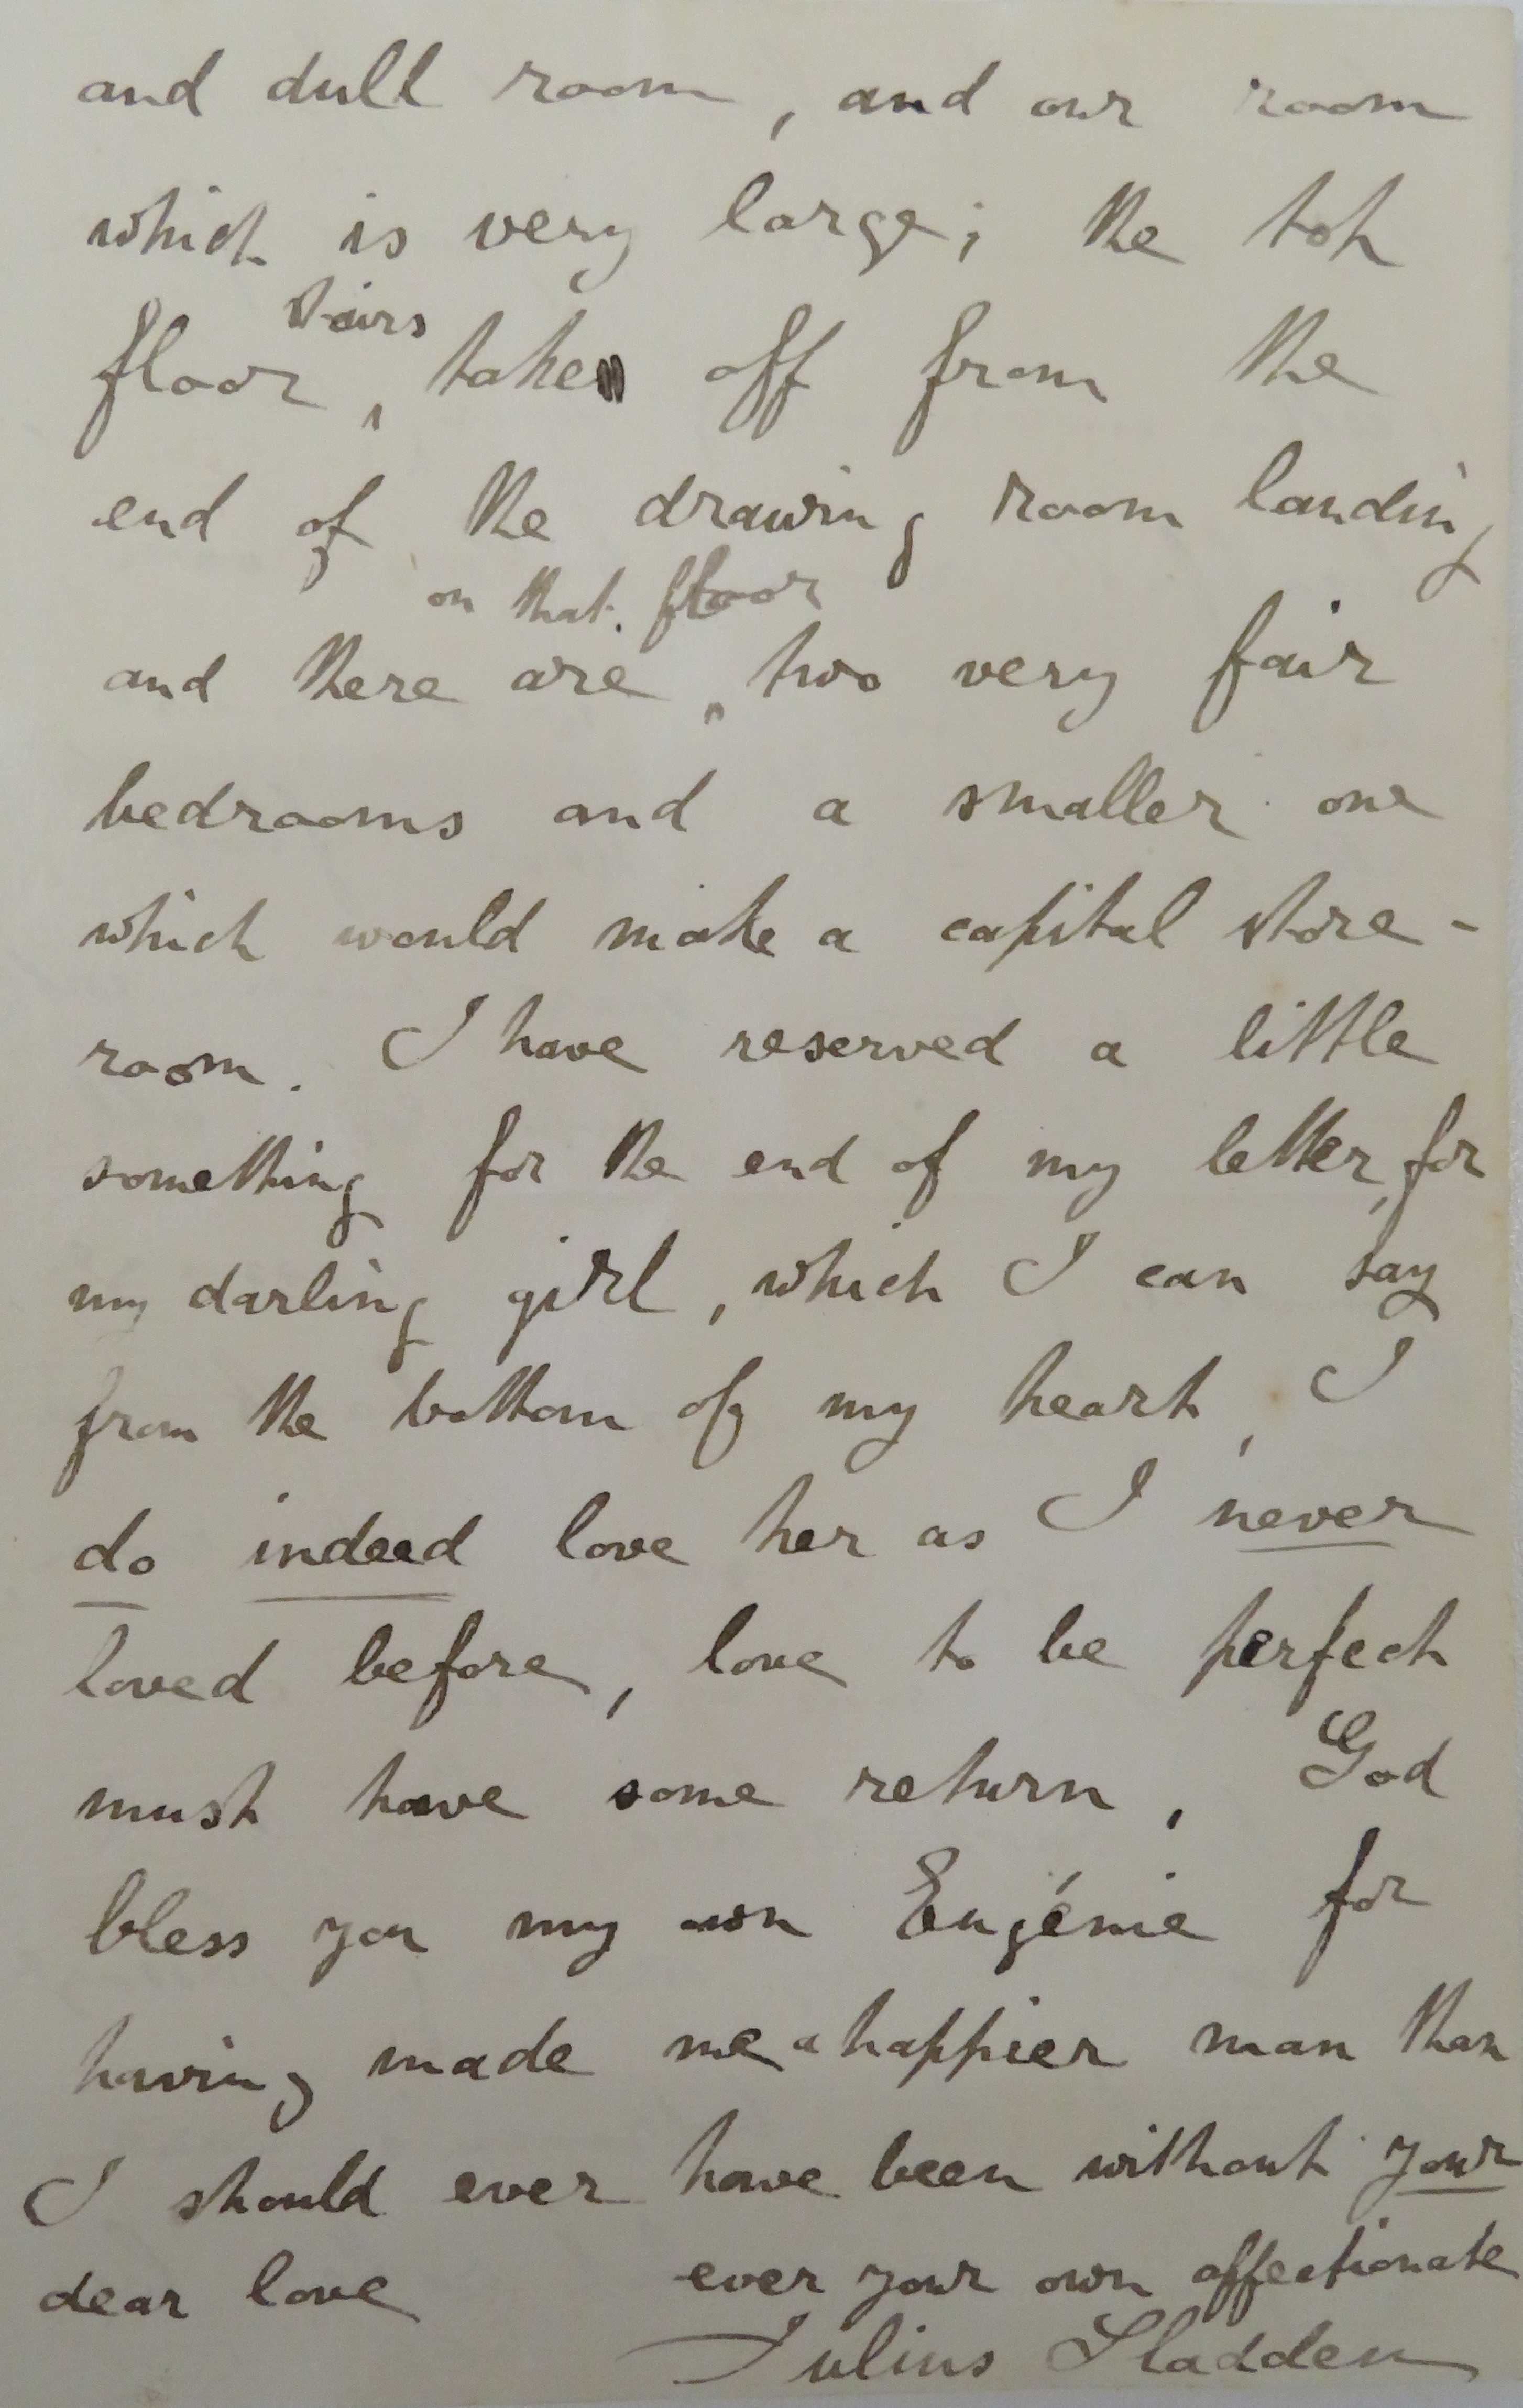 and dull room, and our room
which is very large; the top
stairs
floor, take off from the
end of the drawing room landing
on that floor
and there are two very fair
bedrooms and a smaller one
which would make a capital store-
room. I have reserved a little
something for the end of my letter, for
my darling girl, which I can say
from the bottom of my heart, I
do indeed love her as I never
loved before, love to be perfect
must have some return, God
bless you my own Eugénie for
having made me a happier man than
I should ever have been without your
dear love ever your own affectionate
Julius Sladden